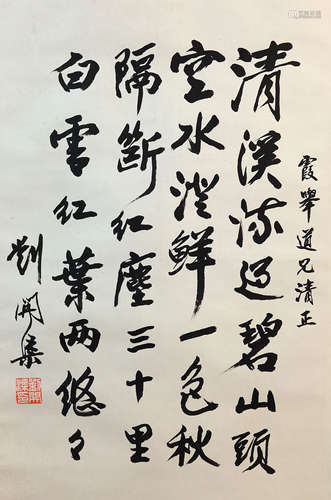 霞舉道兄清正
清溪流過碧山頭
空水澄鮮一色秋
隔斷紅塵三十里
白雲紅葉兩悠々
劉開渠